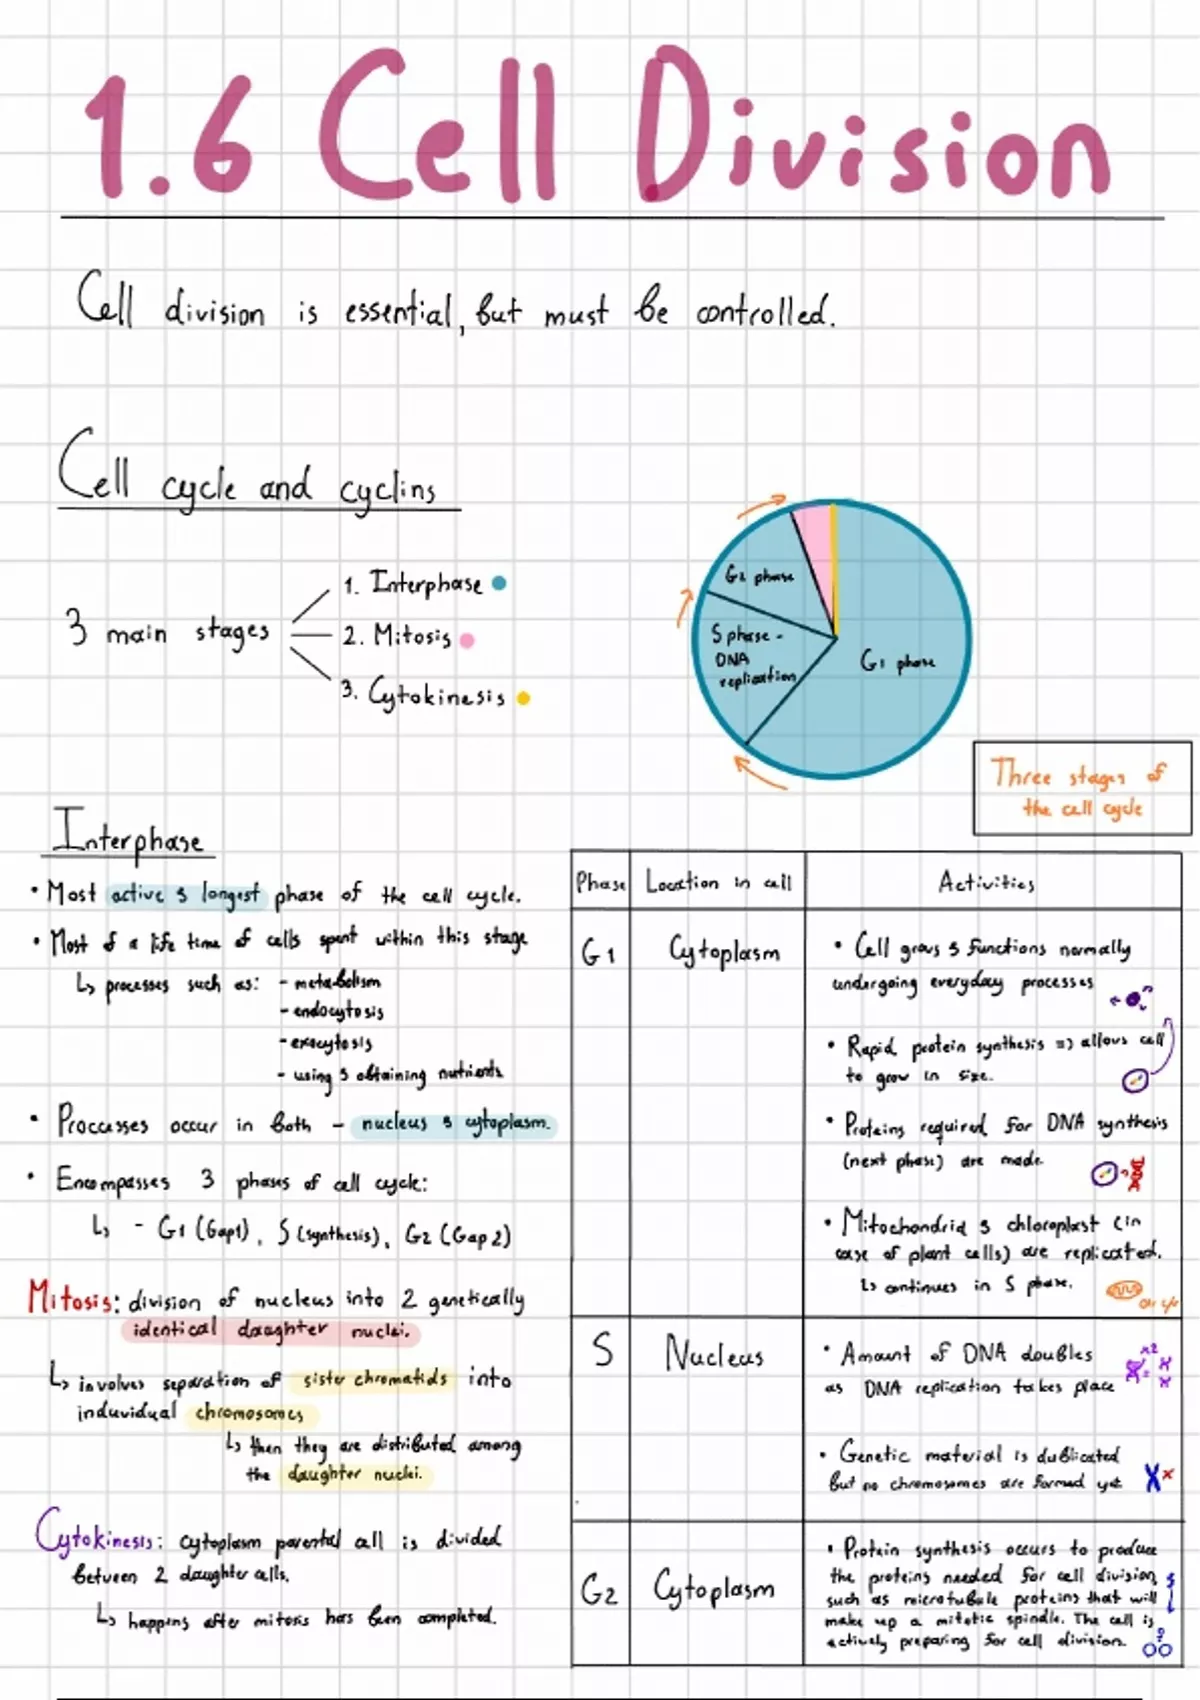 1.6 Cell Division
Cell division is essential, but must be controlled.
Cell cycle and cyclins
3 main stages
1. Interphase
2. Mitosis
3. Cytokinesis
G2 phase
S phase -
DNA
replication
G1 phase
Three stages of
the cell cycle
Interphase
• Most active & longest phase of the cell cycle.
• Most of a life time of cells spent within this stage
↳ processes such as: - metabolism
- endocytosis
- exocytosis
- using & obtaining nutrients
• Processes occur in both - nucleus & cytoplasm.
• Encompasses 3 phases of cell cycle:
↳ - G1 (Gap1), S (synthesis), G2 (Gap 2)
Mitosis: division of nucleus into 2 genetically
identical daughter nuclei.
↳ involves separation of sister chromatids into
induvidual chromosomes
↳ then they are distributed among
the daughter nuclei.
Cytokinesis: cytoplasm parental cell is divided
between 2 daughter cells.
↳ happens after mitosis has been completed.
Phase Location in cell Activities
G1 Cytoplasm
• Cell grows & functions normally
undergoing everyday processes
• Rapid protein synthesis => allows cell
to grow in size.
• Proteins required for DNA synthesis
(next phase) are made.
• Mitochondria & chloroplast (in
case of plant cells) are replicated.
↳ continues in S phase.
S Nucleus
• Amount of DNA doubles
as DNA replication takes place
x2
• Genetic material is dublicated
but no chromosomes are formed yet
G2 Cytoplasm
• Protein synthesis occurs to produce
the proteins needed for cell division,
such as microtubule proteins that will
make up a mitotic spindle. The cell is
actively preparing for cell division.